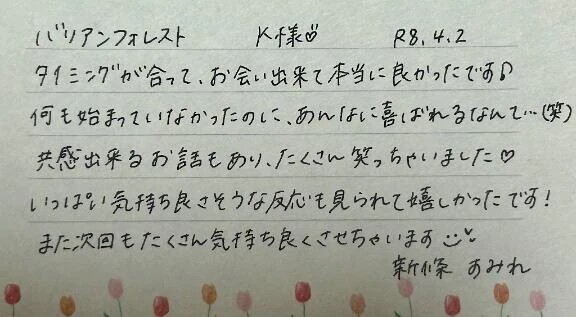 バリアンフォレスト K様♡ R8.4.2
タイミングが合って、お会い出来て本当に良かったです♪
何も始まっていなかったのに、あんなに喜ばれるなんて…(笑)
共感出来るお話もあり、たくさん笑っちゃいました♡
いっぱい気持ち良さそうな反応も見られて嬉しかったです!
また次回もたくさん気持ち良くさせちゃいます
新條 すみれ